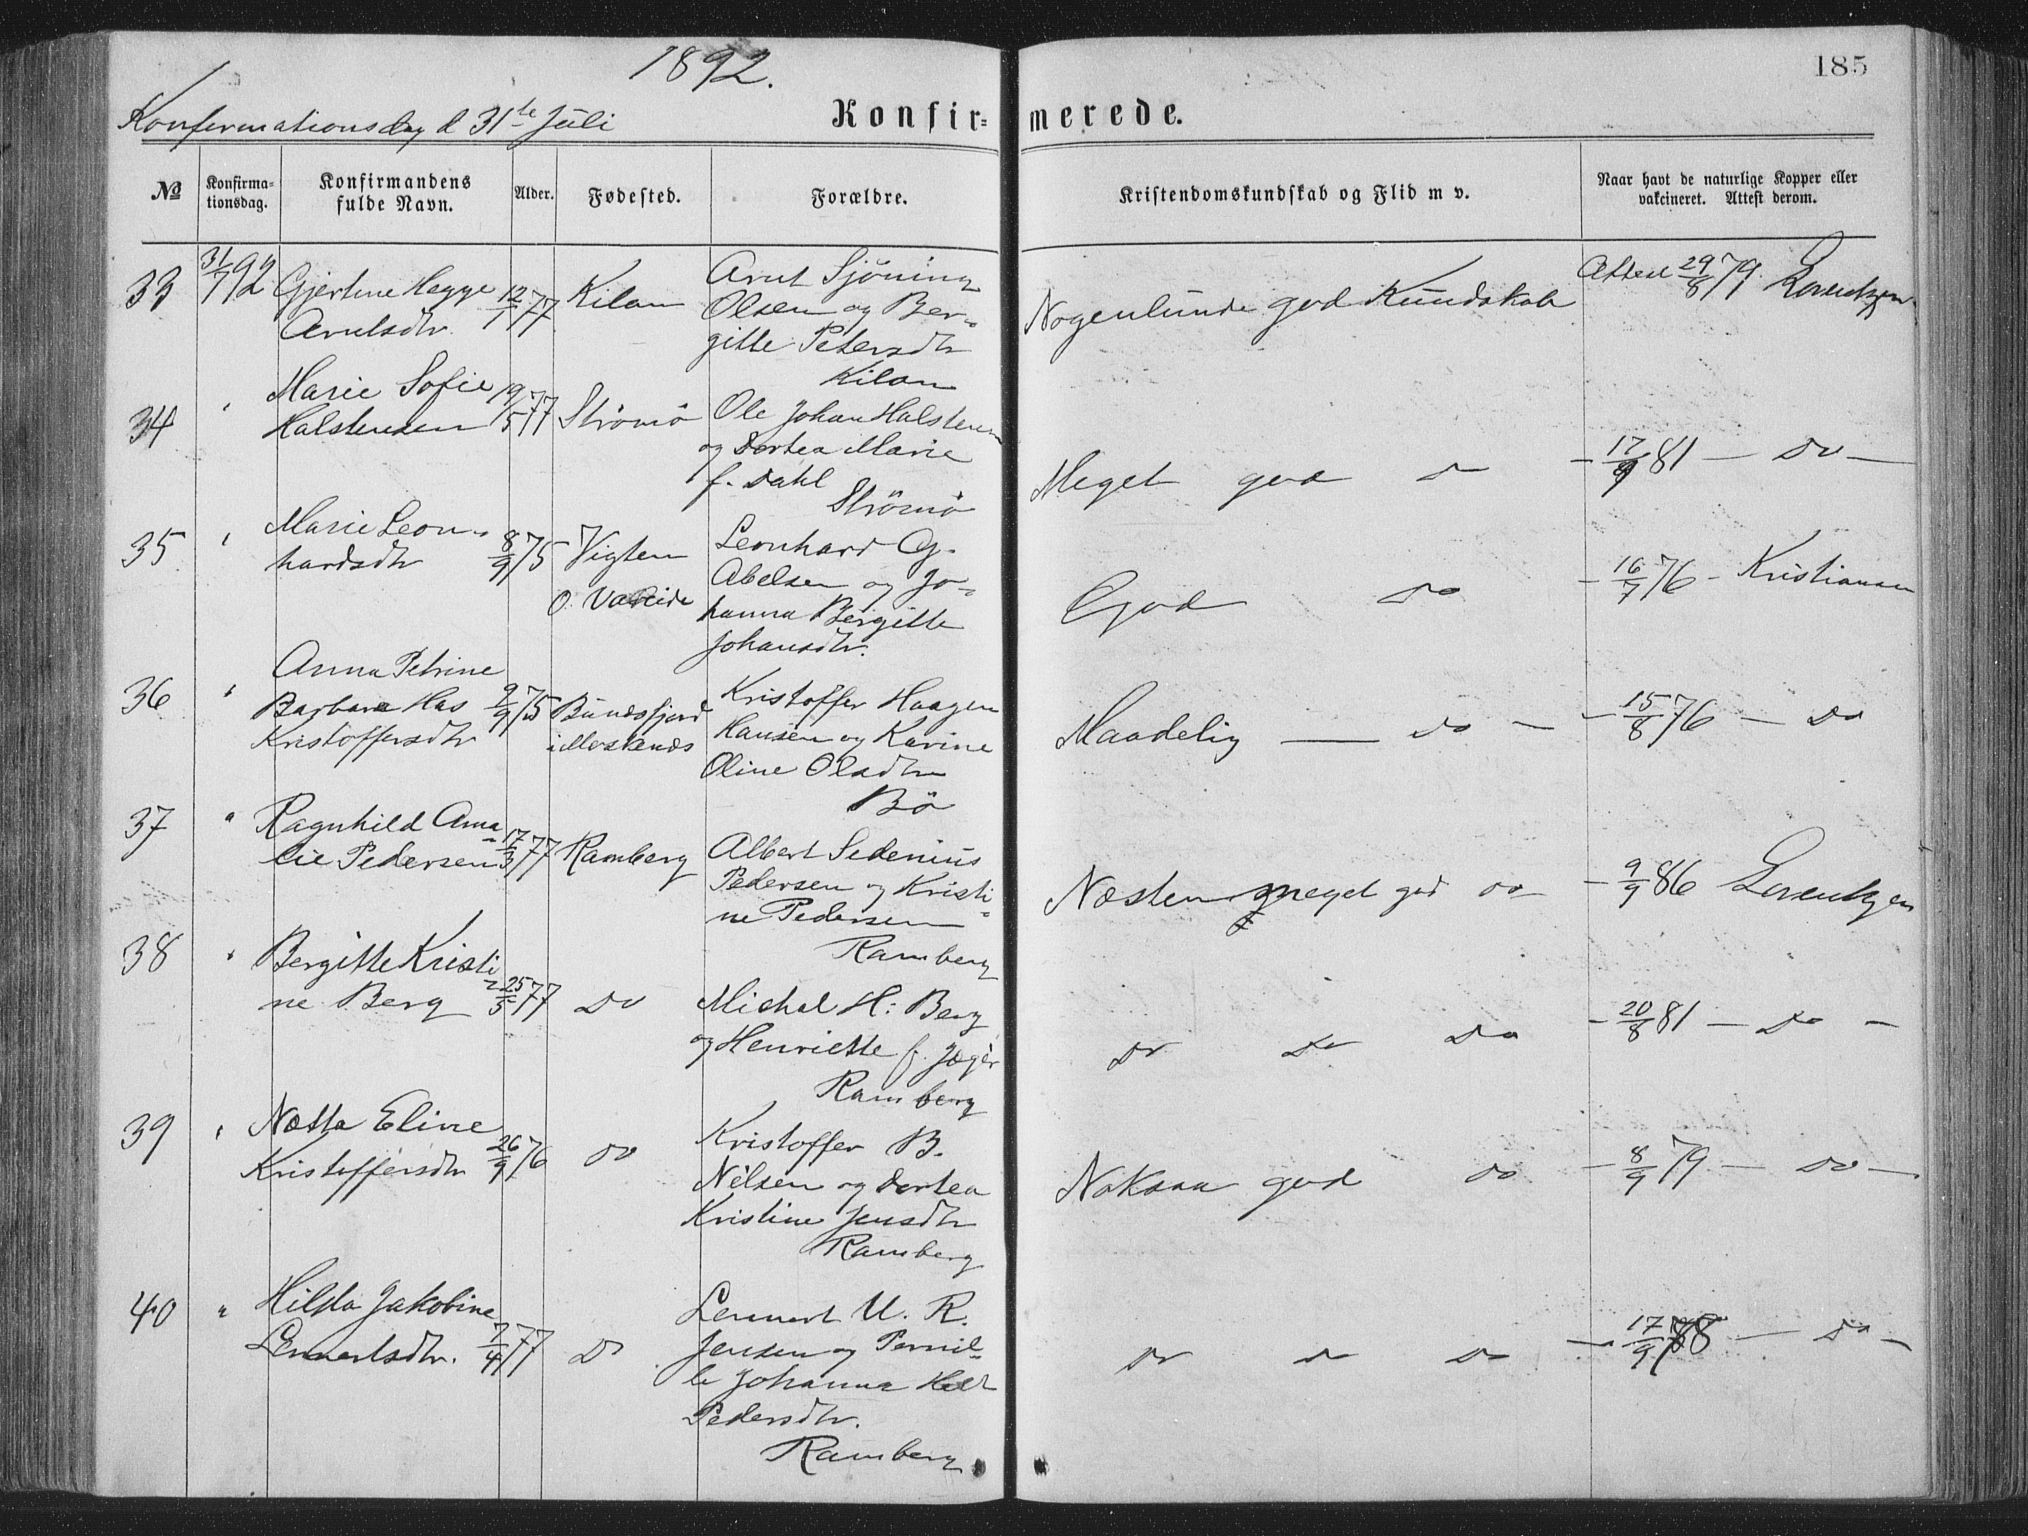 1892.
185
Konfirmationsdag d 31te Juli
Konfir- merede.
No
Konfirma-
tionsdag.
Konfirmandens
fulde Navn.
Alder.
Fødested.
Forældre.
Kristendomskundskab og Flid m v.
Naar havt de naturlige Kopper eller
vakcineret. Attest derom.
33 31/7 92 Gjertine Hegge 12/1 77 Kilan Arnt Sjöning
Arntsdtr. Olsen og Ber-
gitte Petersdtr
Kilan
Nogenlunde god Kundskab Attest 29/8 79. Lorentzen
34 " Marie Sofie 19/5 77 Strömö Ole Johan Halstensen
Halstensen og Dortea Marie
f. Dahl
Strömö
Meget god do - 17/9 81 - Do -
35 " Marie Leon- 8/9 75 Vigten Leonhard G.
hardsdtr O. Valeide Abelsen og Jo-
hanna Bergitte
Johansdtr.
God do - 16/7 76 - Kristiansen
36 " Anna Petrine Kristoffer Haagen
Barbara Has 9/9 75 Bundsfjord Hansen og Karine
Kristoffersdtr i Moskenæs Oline Olsdtr
Bö
Maadelig - do - - 15/8 76 - Do
37 " Ragnhild Ama- 17/3 77 Ramberg Albert Sedenius
lie Pedersen Pedersen og Kristi-
ne Pedersen
Ramberg
Næsten meget god do - 9/9 86 Lorentzen
38 " Bergitte Kristi- 25/5 77 Do Michal H. Berg
ne Berg og Henriette f. Jæger
Ramberg
Do Do Do - 20/8 81 - Do -
39 " Netta Eline 26/9 76 do Kristoffer B.
Kristoffersdtr Nilsen og Dortea
Kristine Jensdtr
Ramberg
Noksaa god do - 8/9 79 - Do -
40 " Hilda Jakobine 7/4 77 Do Lennert U. R.
Lennertsdtr. Jensen og Pernil-
le Johanna
Pedersdtr.
Ramberg
Do do Do - 17/9 78 - Do -